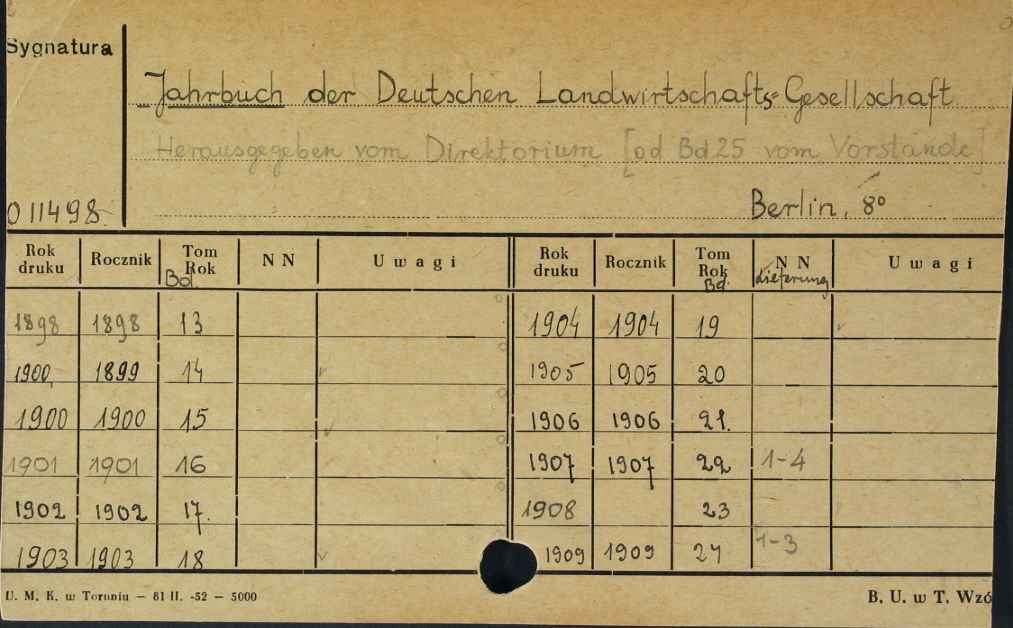 Sygnatura
Jahrbuch der Deutschen Landwirtschafts-Gesellschaft
Herausgegeben vom Direktorium [od Bd 25 vom Vorstande]
011498
Berlin, 8º
Rok druku Rocznik Tom Rok Bd. NN Uwagi Rok druku Rocznik Tom Rok Bd. NN Lieferung Uwagi
1898 1898 13 1904 1904 19
1900 1899 14 1905 1905 20
1900 1900 15 1906 1906 21.
1901 1901 16 1907 1907 22 1-4
1902 1902 17. 1908 23
1903 1903 18 1909 1909 24 1-3
U. M. K. w Toruniu — 81 II. -52 — 5000
B. U. w T. Wzó